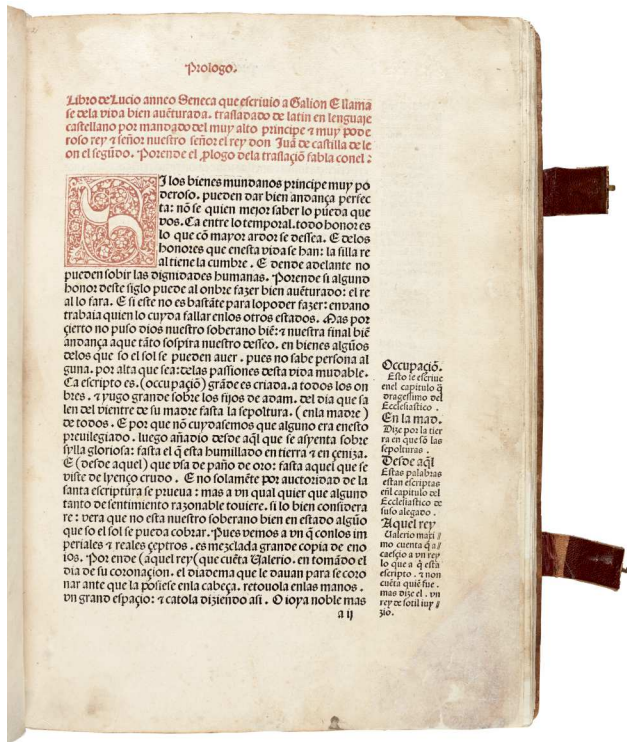 Prologo.
Libro de Lucio anneo Seneca que escriuio a Galion E llama
se dela vida bien auẽturada. trasladado de latin en lenguaje
castellano por mandado del muy alto principe ⁊ muy pode
roso rey ⁊ señor nuestro señor el rey don Juã de castilla de le
on el segũdo. Porende el ꝓlogo dela traslaçiõ fabla conel :
SI los bienes mundanos principe muy po
deroso. pueden dar bien andança perfec
ta: nõ se quien mejor saber lo pueda que
vos. Ca entre lo temporal. todo honor es
lo que cõ mayor ardor se dessea. E delos
honores que enesta vida se han: la silla re
al tiene la cumbre. E dende adelante no
pueden sobir las dignidades humanas. Porende si algund
honor deste siglo puede al onbre fazer bien auẽturado: el re
al lo fara. E si este no es bastãte para lo poder fazer: en vano
trabaia quien lo cuyda fallar enlos otros estados. Mas por
çierto no puso dios nuestro soberano biẽ: ⁊ nuestra final biẽ
andança aque tãto sospira nuestro desseo. en bienes algũos
delos que so el sol se pueden auer. pues no sabe persona al
guna. por alta que sea: delas passiones desta vida mudable.
Ca escripto es. (occupaçiõ) grãde es criada. a todos los on
bres. ⁊ yugo grande sobre los fijos de adam. del dia que sa
len del vientre de su madre fasta la sepoltura. (enla madre)
de todos. E por que nõ cuydasemos que alguno era enesto
preuilegiado. luego añadio desde aq̃l que se asyenta sobre
sylla gloriosa: fasta el q̃ esta humillado en tierra ⁊ en çeniza.
E (desde aquel) que vsa de paño de oro: fasta aquel que se
viste de lyenço crudo. E no solamẽte por auctoridad de la
santa escriptura se prueua: mas a vn qual quier que algund
tanto de sentimiento razonable touiere. si lo bien considera
re: vera que no esta nuestro soberano bien en estado algũo
que so el sol se pueda cobrar. Pues vemos a vn q̃ conlos im
periales ⁊ reales çeptros. es mezclada grande copia de eno
ios. Por ende (aquel rey) que cuẽta Valerio. en tomãdo el
dia de su coronaçion. el diadema que le dauan para se coro
nar ante que la posiese enla cabeça. retouola enlas manos.
vn grand espaçio: ⁊ catola diziendo asi. O ioya noble mas
a ij
Occupaçiõ.
Esto se escriue
enel capitulo q̃
dragesimo del
Ecclesiastico.
En la mad.
Dize por la tier
ra en que sõ las
sepolturas.
Desde aq̃l
Estas palabras
estan escriptas
eñl capitulo del
Ecclesiastico de
suso alegado.
Aquel rey
Valerio maxi
mo cuenta q̃ a
caesçio a vn rey
lo que a q̃ esta
escripto. ⁊ non
cuẽta quiẽ fue.
mas dize el. vn
rey de sotil iuy
zio.